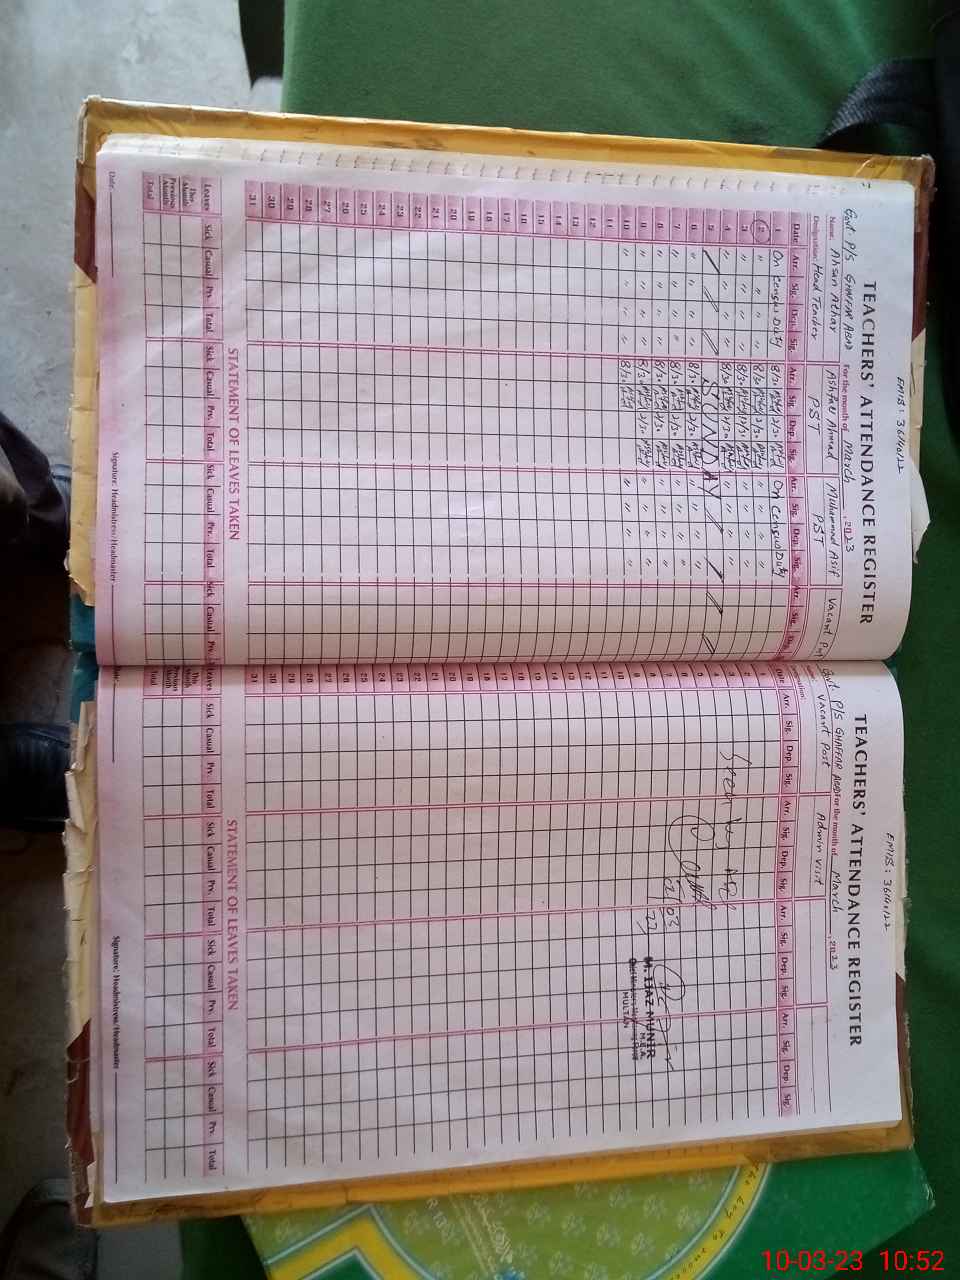 EMIS: 36140122
TEACHERS' ATTENDANCE REGISTER
Govt P/S GHAFFAR ABAD For the month of March, 2023
Name: Ahsan Athar Ashfaq Ahmad Muhammad Asif Vacant Post
Designation: Head Teacher PST PST
Date Arr. Sig. Dep. Sig. Arr. Sig. Dep. Sig. Arr. Sig. Dep. Sig. Arr. Sig. Dep.
1 On Census Duty 8/30 2/30 On Census Duty
2 " " " " 8/30 2/30 " " " "
3 " " " " 8/30 12/30 " " " "
4 " " " " 8/30 " " " "
5 SUNDAY
6 " " " " 8/30 2/30 " " " "
7 " " " " 8/30 2/30 " " " "
8 " " " " 8/30 2/30 " " " "
9 " " " " 8/30 2/30 " " " "
10 " " " " 8/30 " " " "
11
12
13
14
15
16
17
18
19
20
21
22
23
24
25
26
27
28
29
30
31
STATEMENT OF LEAVES TAKEN
Leaves Sick Casual Prv. Total Sick Casual Prv. Total Sick Casual Prv. Total Sick Casual Prv.
This Month
Previous Month
Total
Date: Signature: Headmistress/Headmaster
EMIS: 36140122
TEACHERS' ATTENDANCE REGISTER
Govt. P/S GHAFFAR ABAD For the month of March, 2023
Vacant Post Admin visit
Designation:
Date Arr. Sig. Dep. Sig. Arr. Sig. Dep. Sig. Arr. Sig. Dep. Sig. Arr. Sig. Dep. Sig.
1
2
3
4
5
6
7
8
9
10
11
12
13
14
15
16
17
18
19
20
21
22
23
24
25
26
27
28
29
30
31
Seen by
M. IJAZ MUNIR
MULTAN
STATEMENT OF LEAVES TAKEN
Leaves Sick Casual Prv. Total Sick Casual Prv. Total Sick Casual Prv. Total Sick Casual Prv. Total
This Month
Previous Month
Total
Signature: Headmistress/Headmaster
10-03-23 10:52